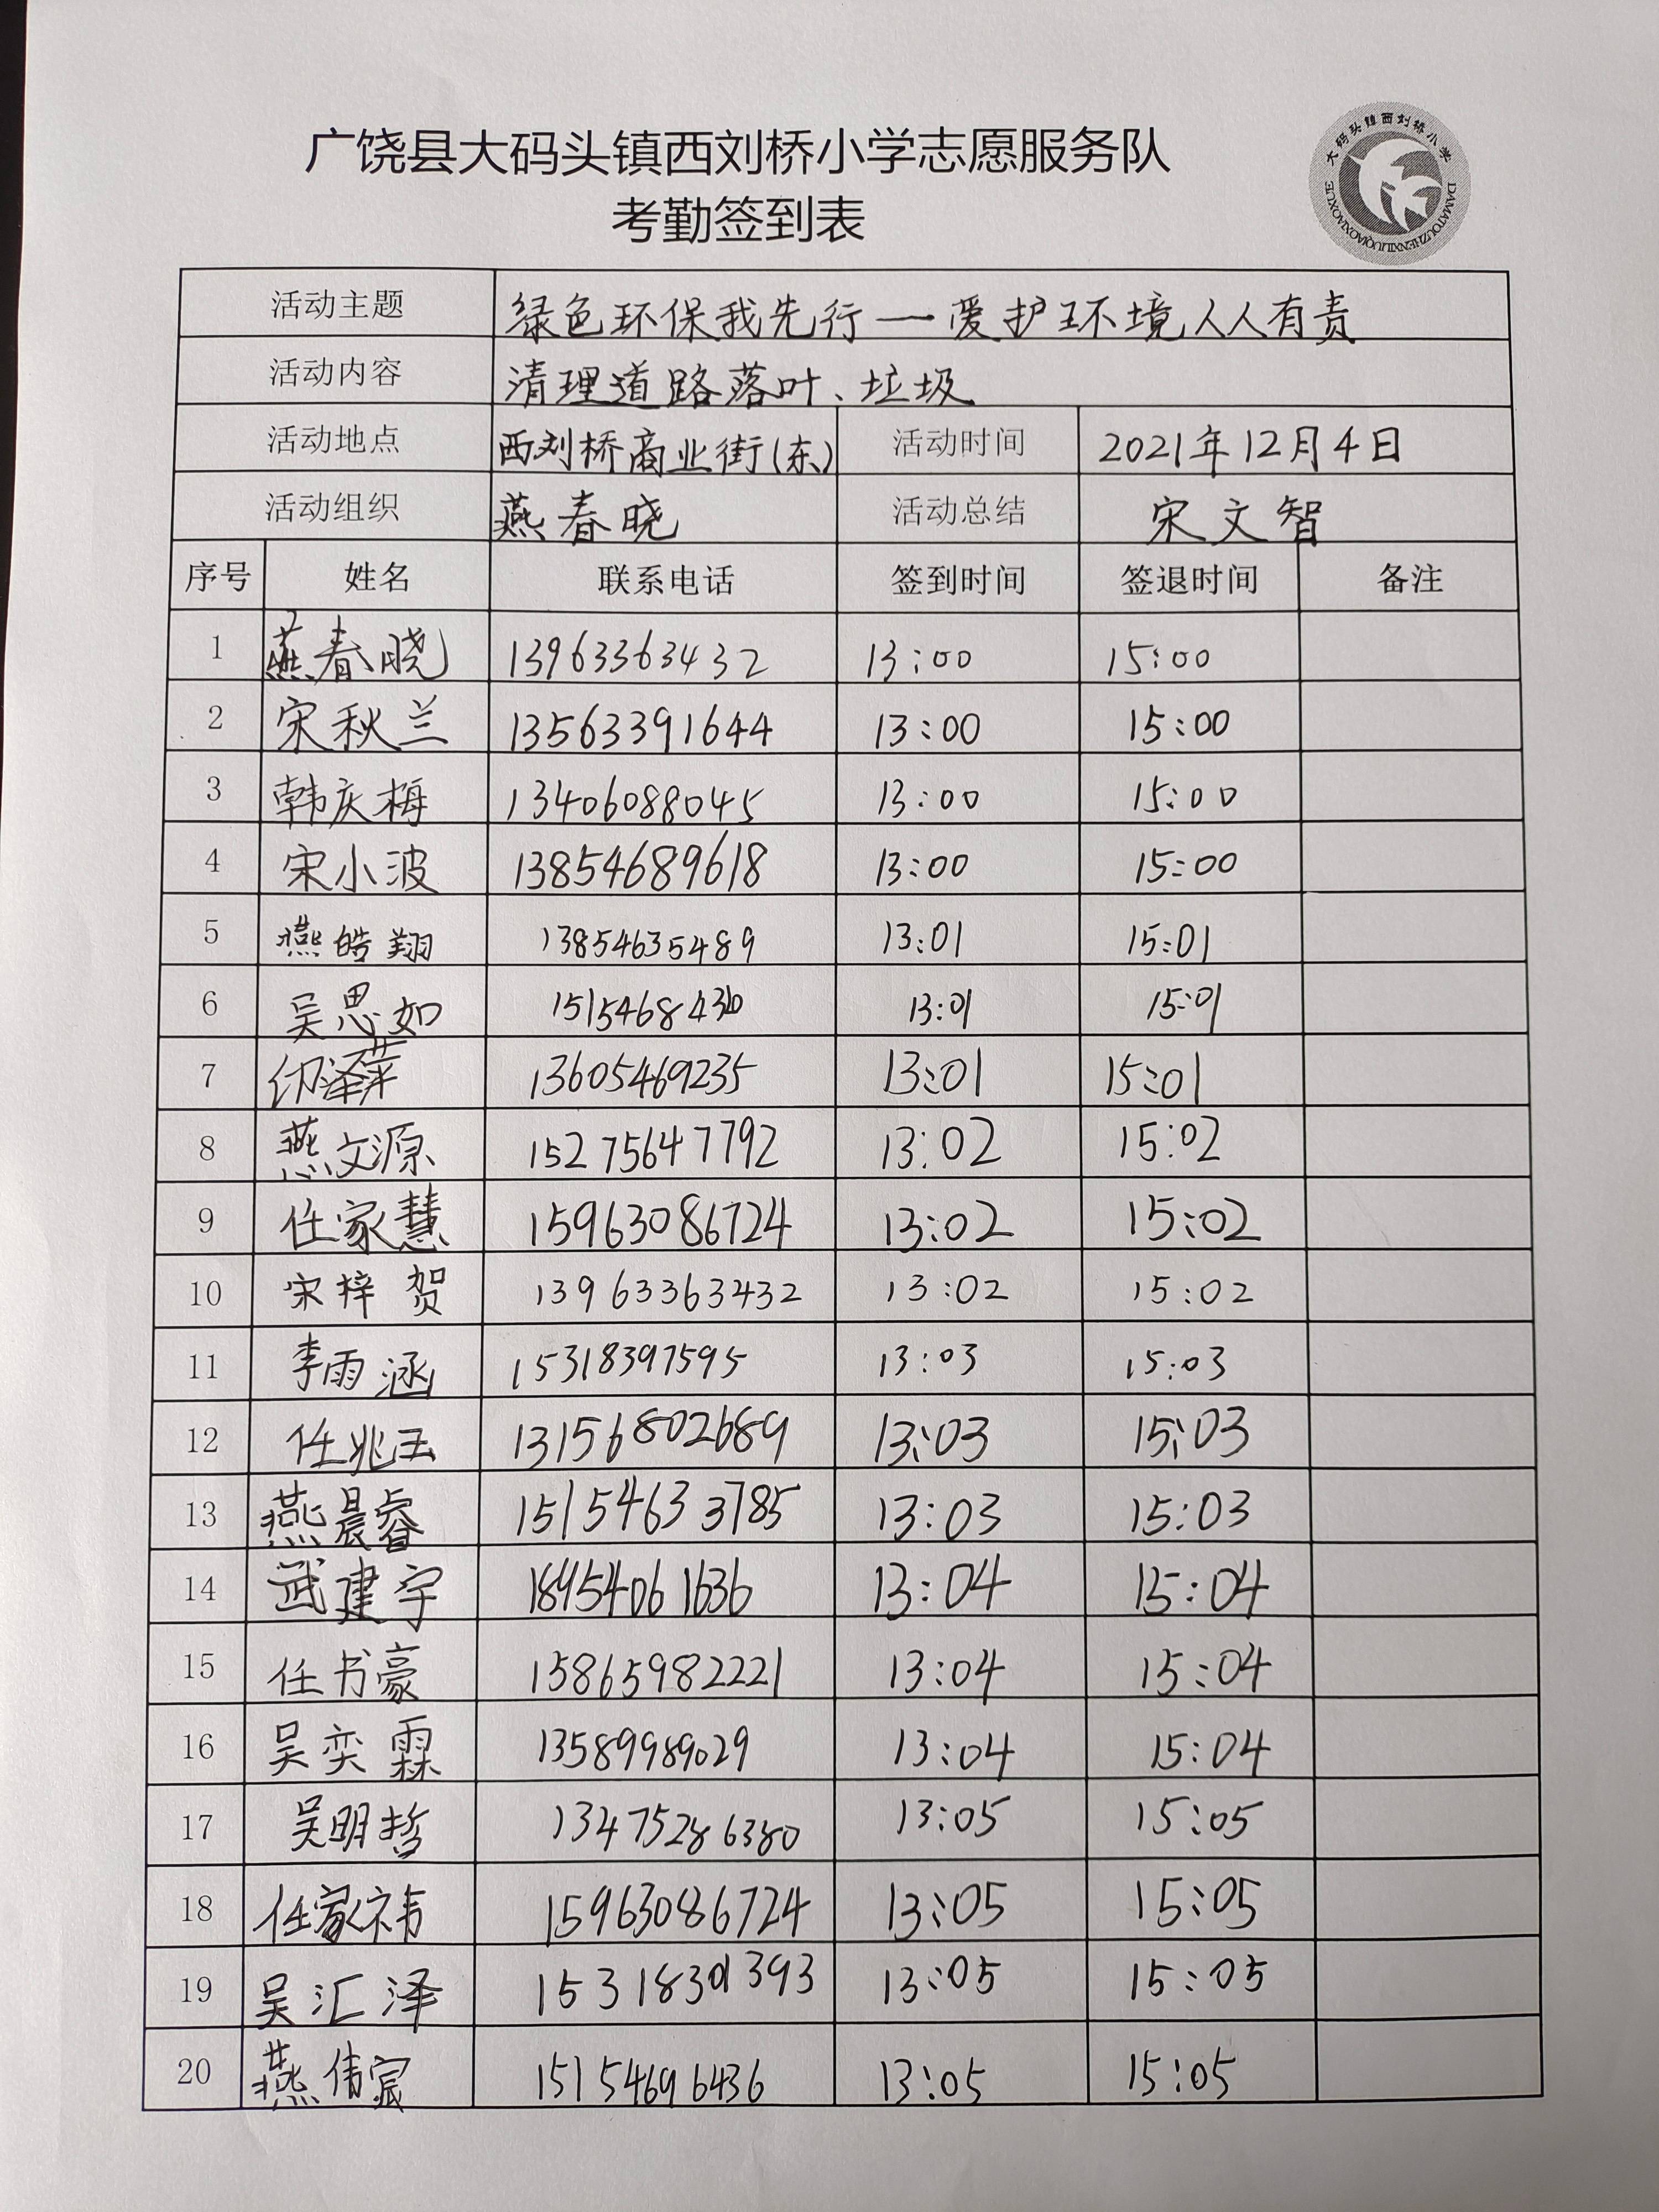 广饶县大码头镇西刘桥小学志愿服务队
考勤签到表
大码头镇西刘桥小学
DAMATOUZHENXILIUQIAOXIAOXUE
活动主题 绿色环保我先行一爱护环境人人有责
活动内容 清理道路落叶、垃圾
活动地点 西刘桥商业街(东) 活动时间 2021年12月4日
活动组织 燕春晓 活动总结 宋文智
序号 姓名 联系电话 签到时间 签退时间 备注
1 燕春晓 13963363432 13:00 15:00
2 宋秋兰 13563391644 13:00 15:00
3 韩庆梅 13406088045 13:00 15:00
4 宋小波 13854689618 13:00 15:00
5 燕皓翔 13854635489 13:01 15:01
6 吴思如 13:01 15:01
7 13605469235 13:01 15:01
8 燕文源 15275647792 13:02 15:02
9 任家慧 15963086724 13:02 15:02
10 宋梓贺 13963363432 13:02 15:02
11 李雨涵 15318397595 13:03 15:03
12 任兆玉 13156802689 13:03 15:03
13 燕晨睿 15154633785 13:03 15:03
14 武建宇 18954061636 13:04 15:04
15 任书豪 15865982221 13:04 15:04
16 吴奕霖 13589989029 13:04 15:04
17 吴明哲 13475286380 13:05 15:05
18 任家祎 15963086724 13:05 15:05
19 吴汇泽 13:05 15:05
20 燕伟宸 15154696436 13:05 15:05